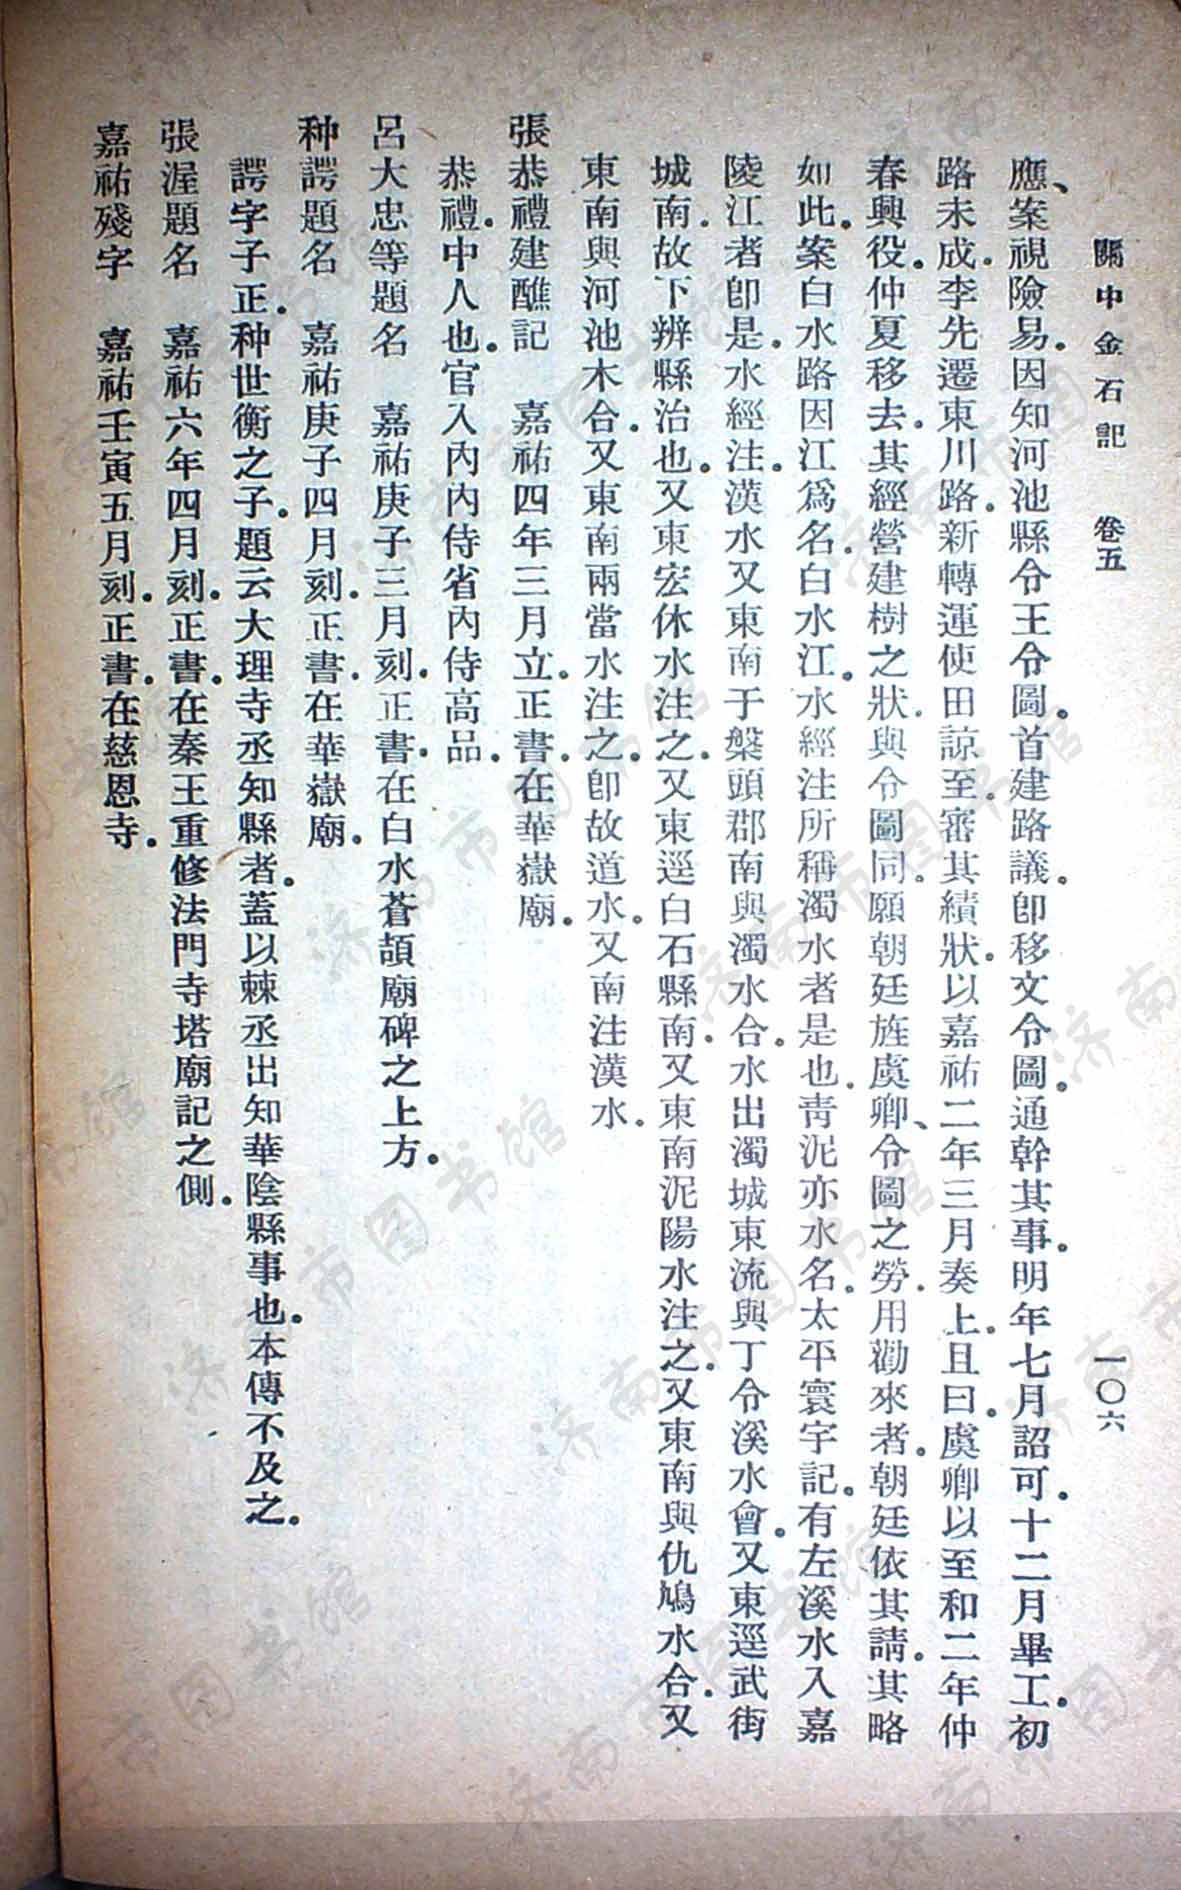 關中金石記　卷五　一〇六
應、案視險易。因知河池縣令王令圖。首建路議。卽移文令圖。通幹其事。明年七月詔可。十二月畢工。初
路未成。李先遷東川路。新轉運使田諒至。審其績狀。以嘉祐二年三月奏上。且曰。虞卿以至和二年仲
春興役。仲夏移去。其經營建樹之狀。與令圖同。願朝廷旌虞卿、令圖之勞。用勸來者。朝廷依其請。其略
如此。案白水路因江爲名。白水江。水經注所稱濁水者是也。靑泥亦水名。太平寰宇記。有左溪水入嘉
陵江者卽是。水經注。漢水又東南于槃頭郡南與濁水合。水出濁城東流與丁令溪水會。又東逕武街
城南。故下辨縣治也。又東宏休水注之。又東逕白石縣南。又東南泥陽水注之。又東南與仇鳩水合。又
東南與河池木合。又東南兩當水注之。卽故道水。又南注漢水。
張恭禮建醮記　嘉祐四年三月立。正書。在華嶽廟。
恭禮。中人也。官入內內侍省內侍高品。
呂大忠等題名　嘉祐庚子三月刻。正書。在白水蒼頡廟碑之上方。
种諤題名　嘉祐庚子四月刻。正書。在華嶽廟。
諤字子正。种世衡之子。題云大理寺丞知縣者。蓋以棘丞出知華陰縣事也。本傳不及之。
張渥題名　嘉祐六年四月刻。正書。在秦王重修法門寺塔廟記之側。
嘉祐殘字　嘉祐壬寅五月刻。正書。在慈恩寺。
济南市图书馆